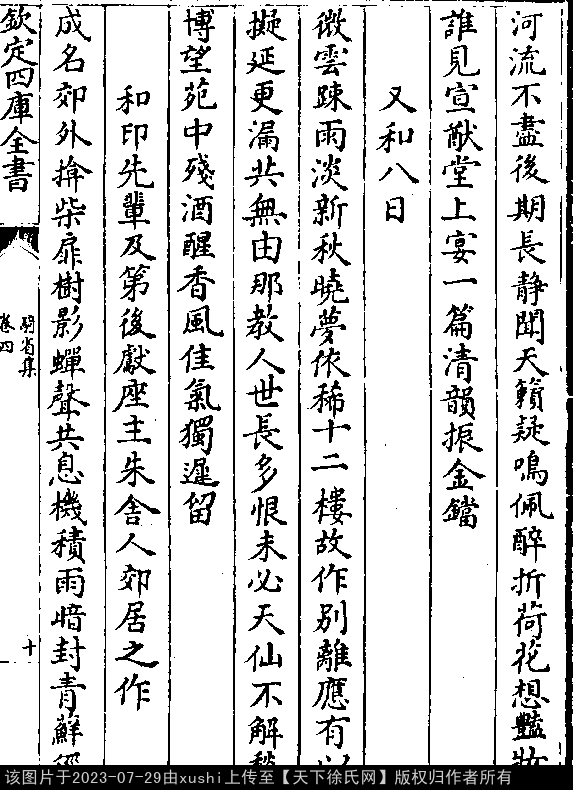 河流不盡後期長静聞天籟疑鳴佩醉折荷花想豔妝
誰見宣猷堂上宴一篇清韻振金鐺
又和八日
微雲踈雨淡新秋曉夢依稀十二樓故作别離應有以
擬延更漏共無由那教人世長多恨未必天仙不解愁
博望苑中殘酒醒香風佳氣獨遲留
和印先輩及第後獻座主朱舎人郊居之作
成名郊外掩柴扉樹影蟬聲共息機積雨暗封青蘚徑
騎省集
卷四
十
欽定四庫全書
该图片于2023-07-29由xushi上传至【天下徐氏网】版权归作者所有